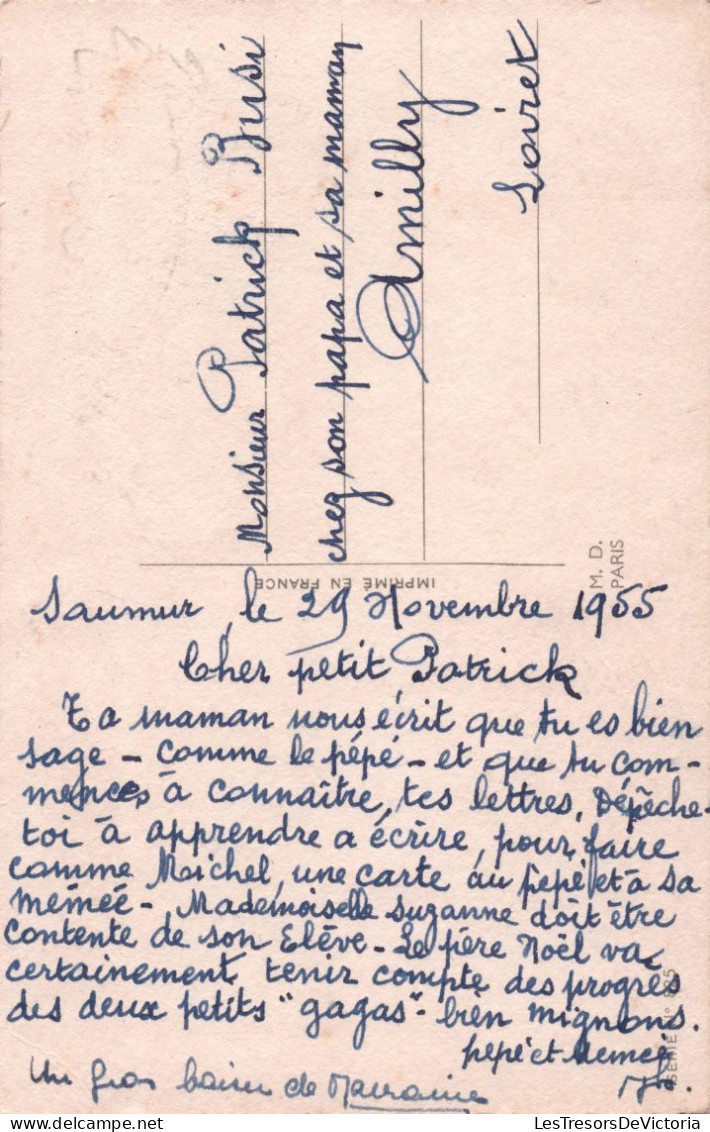 Monsieur Patrick Busi
chez son papa et sa maman
Amilly
Loiret
M. D.
PARIS
IMPRIMÉ EN FRANCE
Saumur, le 29 Novembre 1955
Cher petit Patrick
Ta maman nous écrit que tu es bien
sage - comme le pépé - et que tu com-
mences à connaître, tes lettres. Dépêche-
toi à apprendre a écrire, pour faire
comme Michel, une carte au pépé et à sa
mémée - Mademoiselle Suzanne doit être
contente de son Elève - Le père Noël va
certainement tenir compte des progrès
des deux petits "gagas" - bien mignons.
pépé et Memée
Un gros baiser de Marraine
SERIE N° 825
LesTresorsDeVictoria@delcampe.net